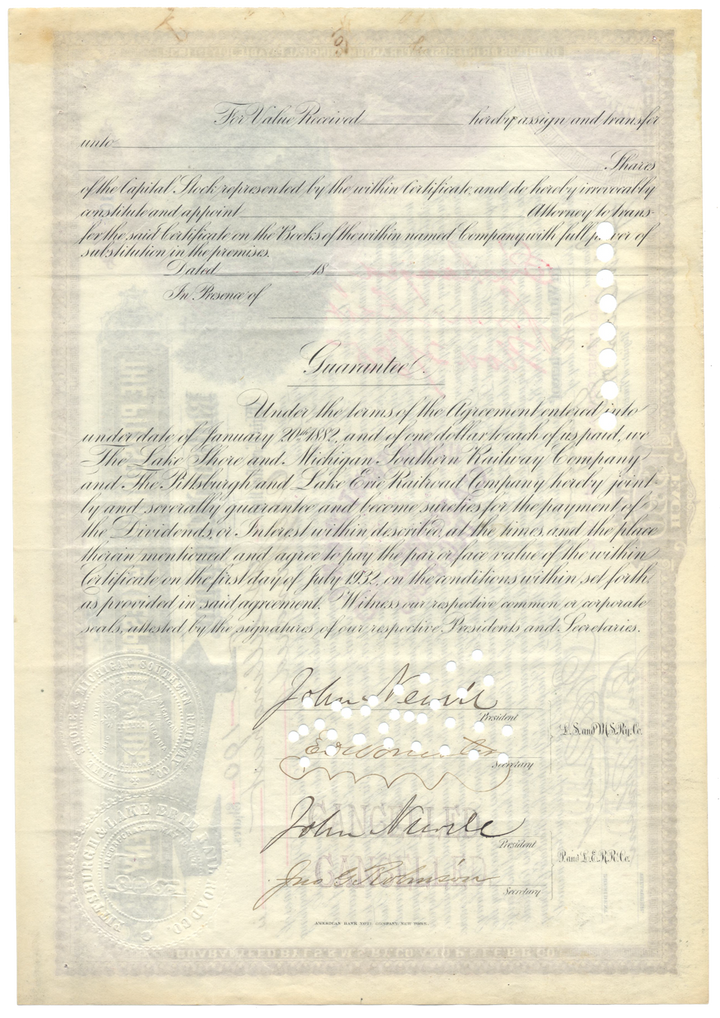 For Value Received hereby assign and transfer
unto
Shares
of the Capital Stock represented by the within Certificate, and do hereby irrevocably
constitute and appoint Attorney to trans-
fer the said Certificate on the Books of the within named Company, with full power of
substitution in the premises.
Dated 18
In Presence of
Guarantee.
Under the terms of the Agreement entered into
under date of January 20th 1882, and of one dollar to each of us paid, we
The Lake Shore and Michigan Southern Railway Company
and The Pittsburgh and Lake Erie Railroad Company hereby joint-
ly and severally guarantee and become sureties for the payment of
the Dividends, or Interest within described, at the times, and the place
therein mentioned, and agree to pay the par or face value of the within
Certificate on the first day of July 1932, on the conditions within set forth,
as provided in said agreement. Witness our respective common or corporate
seals, attested by the signatures of our respective Presidents and Secretaries.
John Newell
President
L. S. and M. S. Ry. Co.
Secretary
CANCELLED
John Newell
President
P. and L. E. R. R. Co.
Jno. G. Robinson
Secretary
PITTSBURGH & LAKE ERIE RAILROAD CO.
AMERICAN BANK NOTE COMPANY, NEW YORK.